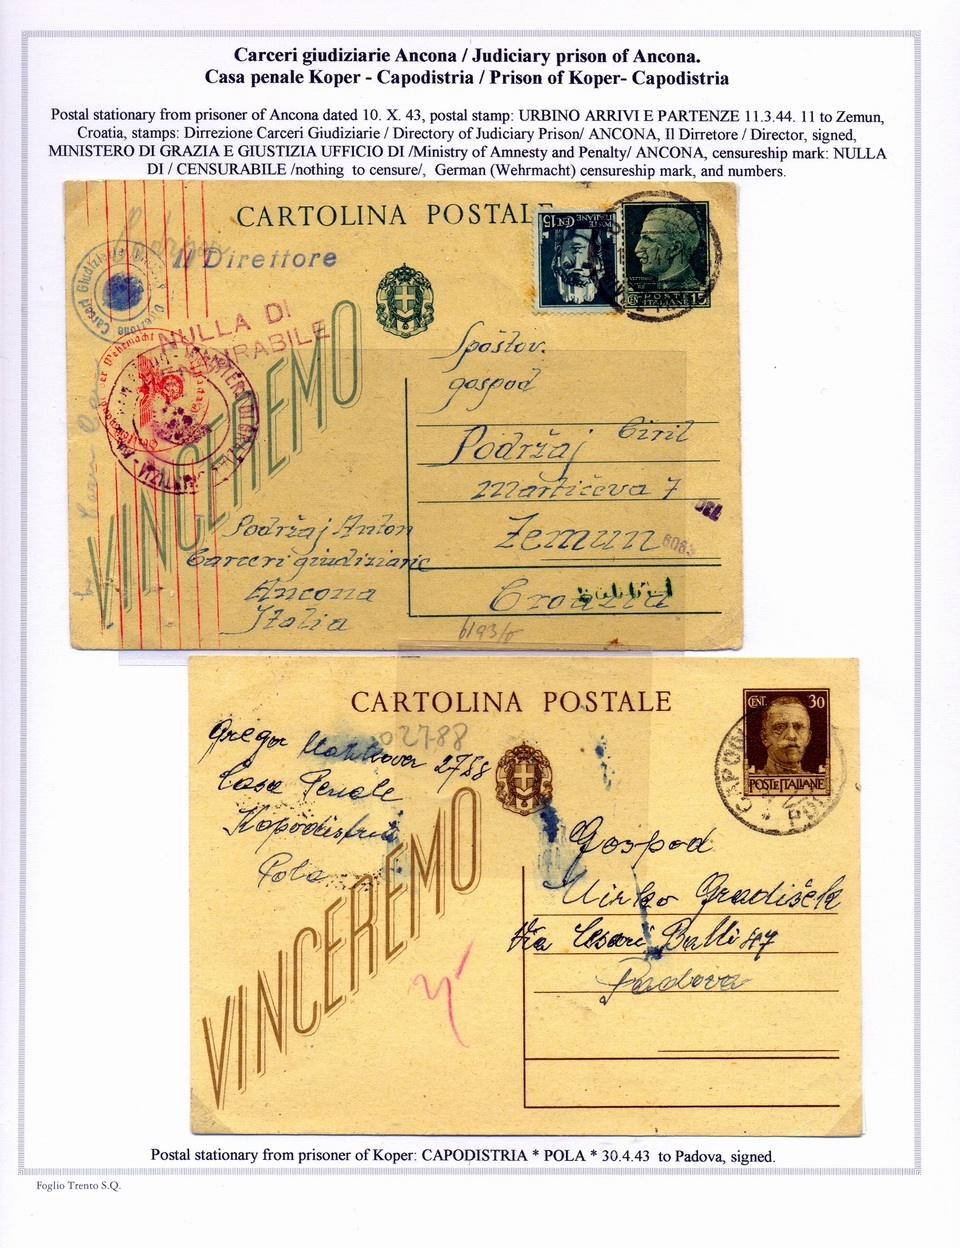 Carceri giudiziarie Ancona / Judiciary prison of Ancona.
Casa penale Koper - Capodistria / Prison of Koper- Capodistria
Postal stationary from prisoner of Ancona dated 10. X. 43, postal stamp: URBINO ARRIVI E PARTENZE 11.3.44. 11 to Zemun,
Croatia, stamps: Dirrezione Carceri Giudiziarie / Directory of Judiciary Prison/ ANCONA, Il Dirretore / Director, signed,
MINISTERO DI GRAZIA E GIUSTIZIA UFFICIO DI /Ministry of Amnesty and Penalty/ ANCONA, censureship mark: NULLA
DI / CENSURABILE /nothing to censure/, German (Wehrmacht) censureship mark, and numbers.
CARTOLINA POSTALE
CEN.15
POSTE
ITALIANE
15
Il Direttore
Carceri Giudiziarie
Direzione
NULLA DI
CENSURABILE
Wehrmacht
VINCEREMO
Spoštov.
gospod
Podržaj Ciril
Martićeva 7
Zemun
6063
Croazia
Podržaj Anton
Carceri giudiziarie
Ancona
Italia
CARTOLINA POSTALE
CENT. 30
POSTE ITALIANE
02788
Gregor 2788
Casa Penale
Kopodistria
Pola
VINCEREMO
Gospod
Mirko Gradišek
Via Cesare Balli 47
Padova
Postal stationary from prisoner of Koper: CAPODISTRIA * POLA * 30.4.43 to Padova, signed.
Foglio Trento S.Q.